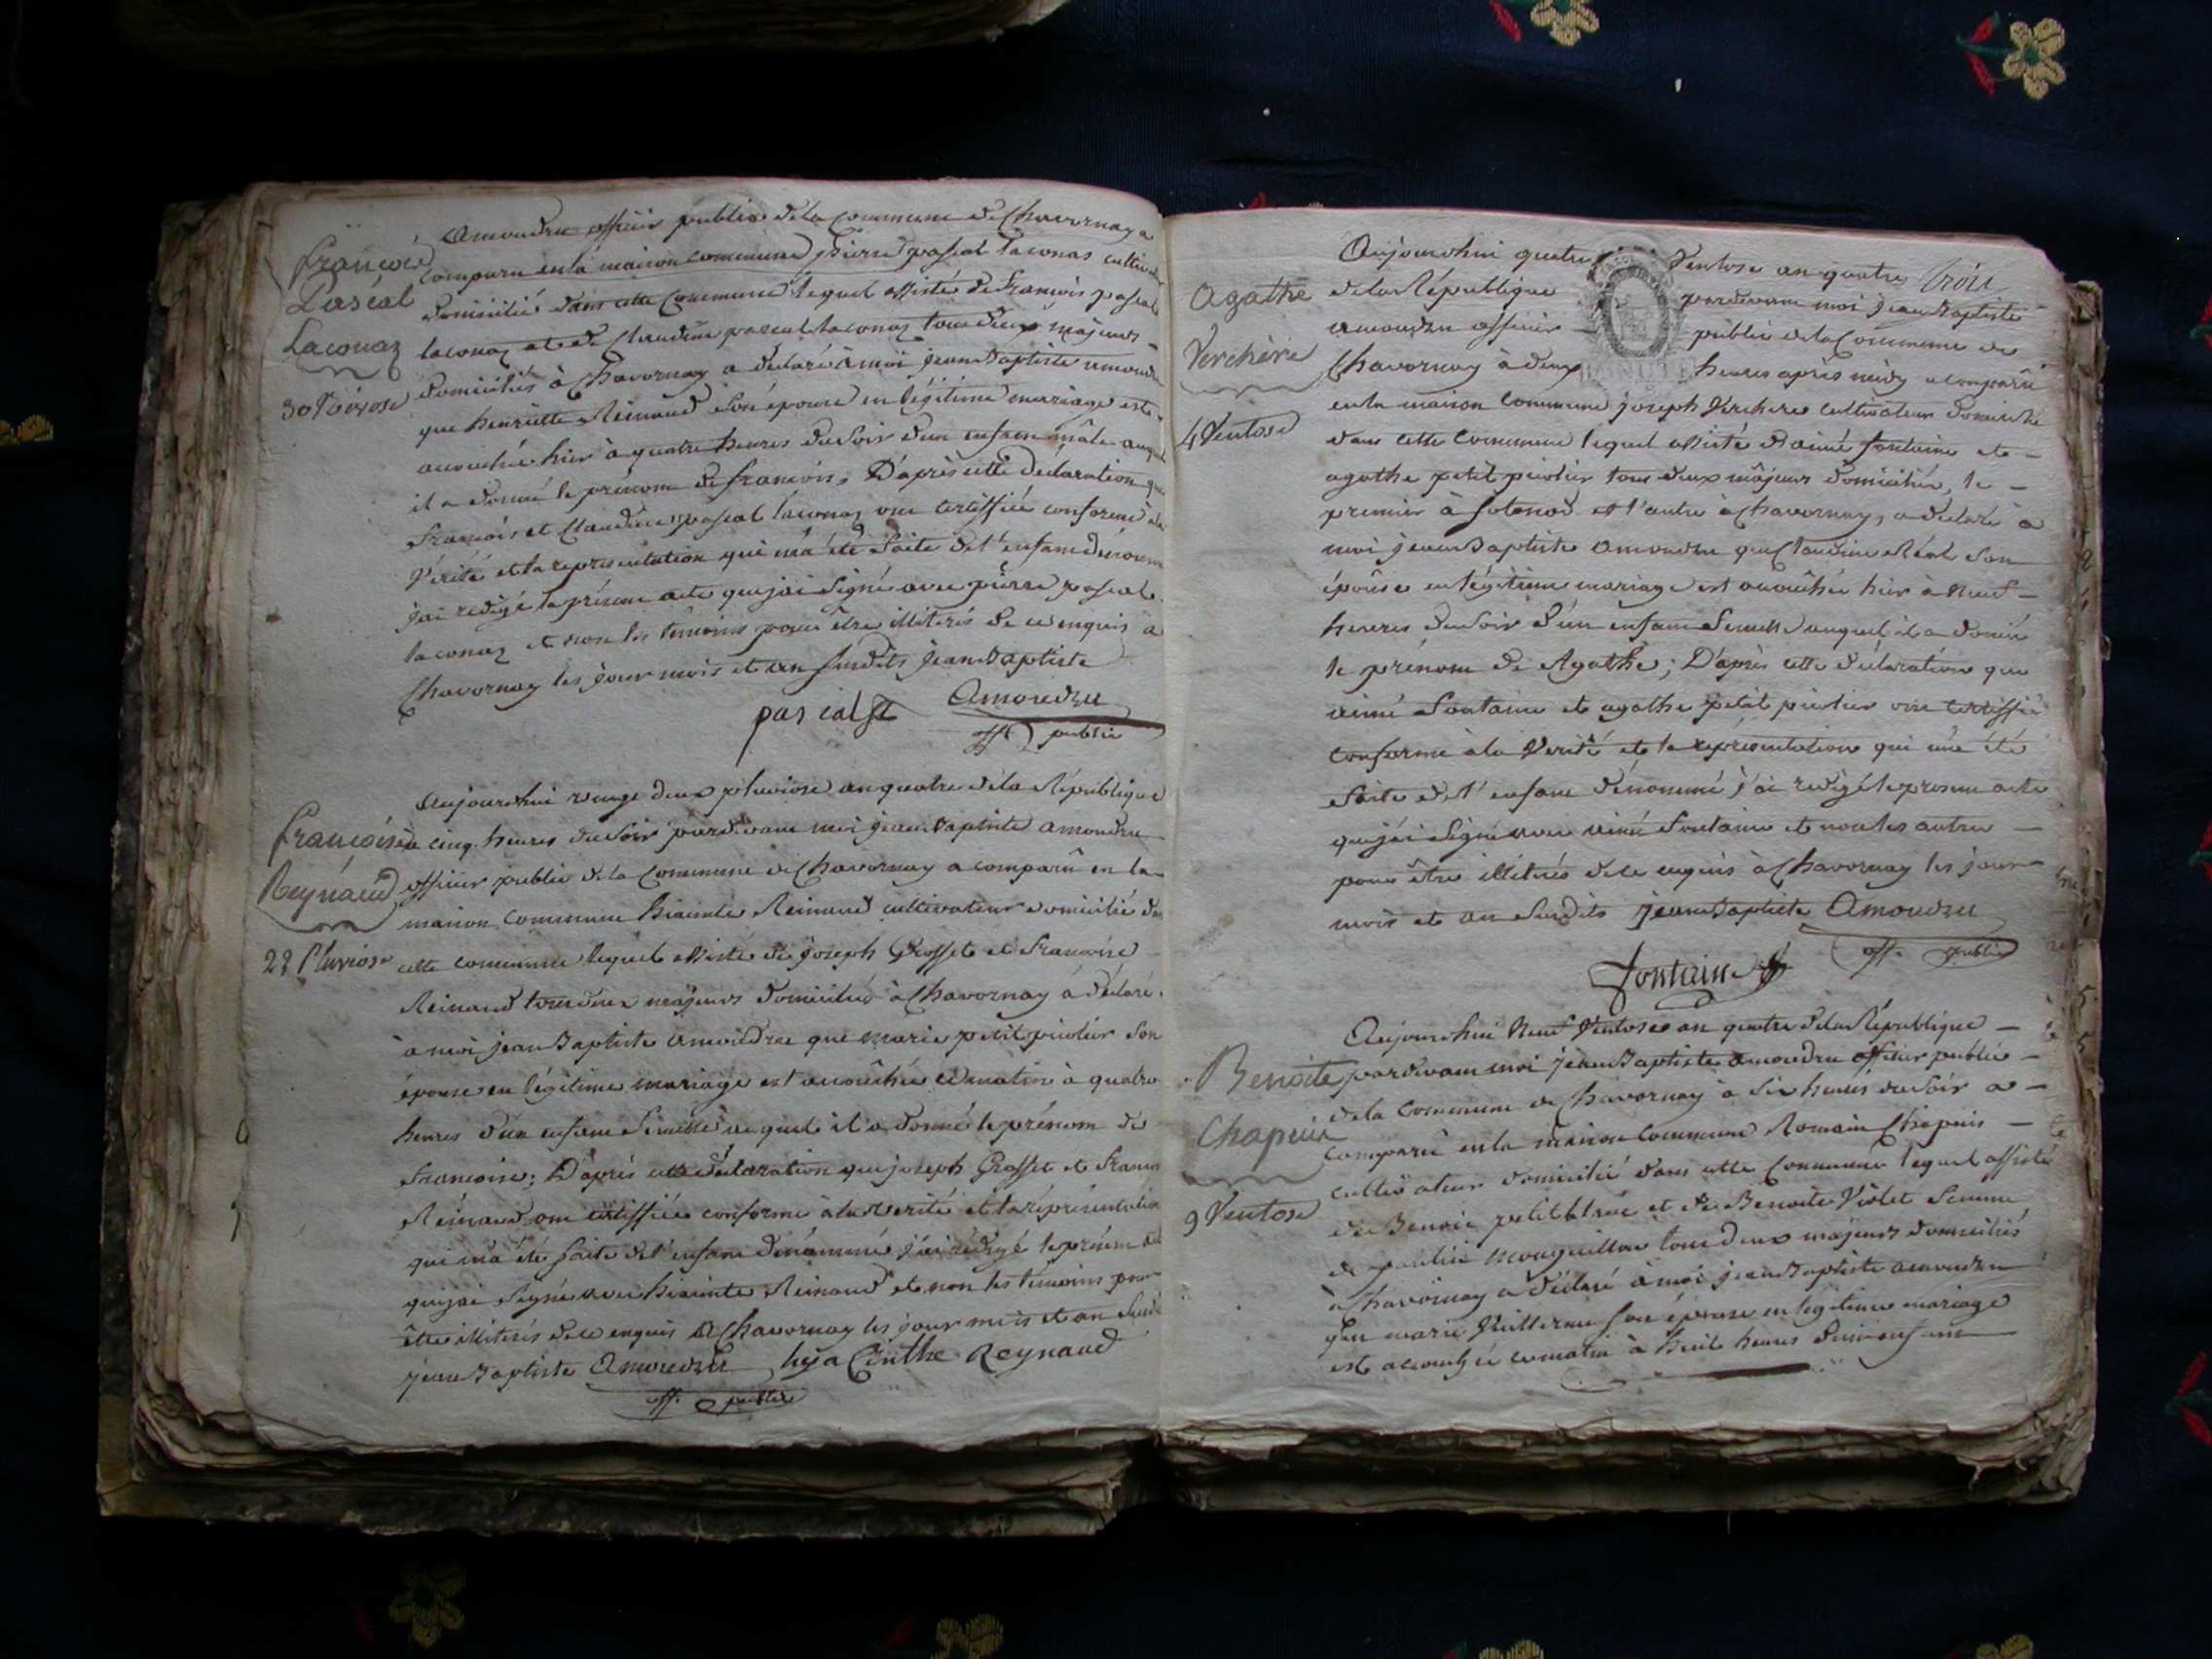 Amoudru officier public de la commune de Chavornay a
François
comparu en la maison commune pierre pascal laconas cultivat
Pascal
domicilié dans cette commune lequel assisté de françois pascal
Laconaz
laconaz et de Claudine pascal laconaz tous deux majeurs
30 Nivose
domiciliés à Chavornay a déclaré à moi jean Baptiste amoudru
que henriette Reinaud son épouse en légitime mariage est
acouchée hier à quatre heures du soir d'un enfant mâle auquel
il a donné le prénom de françois. D'après cette déclaration que
françois et Claudine pascal laconaz ont certiffiée conforme à la
Vérité et la représentation qui m'a été faite de l'enfant dénommé
j'ai rédigé le présent acte que j'ai signé avec pierre pascal
laconaz et non les témoins pour être illitérés de ce enquis à
Chavornay les jour mois et an susdits jean Baptiste
pascalst Amoudru
off. public
Aujourd'hui vingt deux pluviose an quatre de la République
Françoise
à cinq heures du soir pardevant moi jean Baptiste amoudru
Reynaud
officier public de la commune de Chavornay a comparu en la
maison commune hiacinte Reinaud cultivateur domicilié dans
22 Pluviose
cette commune lequel assisté de joseph Grosset et françoise
Reinaud tous deux majeurs domiciliés à Chavornay a déclaré
à moi jean Baptiste amoudru que marie petit piculier son
épouse en légitime mariage est acouchée ce matin à quatre
heures d'un enfant femelle auquel il a donné le prénom de
françoise; D'après cette déclaration que joseph Grosset et françoise
Reinaud ont certiffiée conforme à la vérité et la représentation
qui m'a été faite de l'enfant dénommé j'ai rédigé le présent acte
que j'ai signé avec hiacinte Reinaud et non les témoins pour
être illitérés de ce enquis à Chavornay les jour mois et an susd
jean Baptiste Amoudru hya Cinthe Reynaud
off. public
Aujourdhui quatre Ventose an quatre trois
Agathe
de la République pardevant moi jean Baptiste
amoudru officier public de la commune de
Verchère
Chavornay à deux heures après midy a comparu
en la maison commune joseph Verchere cultivateur domicilié
4 Ventose
dans cette commune lequel assisté d'aimé fontaine et
agathe petit piculier tous deux majeurs domiciliés, le
premier à fotenod et l'autre à Chavornay, a déclaré à
moi jean Baptiste amoudru que Claudine Réal son
épouse en légitime mariage est acouchée hier à neuf
heures du soir d'un enfant femelle auquel il a donné
le prénom de Agathe; D'après cette déclaration que
aimé fontaine et agathe petit piculier ont certiffié
conforme à la Verité et la représentation qui m'a été
faite de l'enfant dénommé j'ai rédigé le présent acte
que j'ai signé avec aimé fontaine et non les autres
pour être illitérés de ce enquis à Chavornay les jour
mois et an susdits jean Baptiste Amoudru
off. public
fontaine
Aujourd'hui Neuf Ventose an quatre de la République
Benoite
pardevant moi jean Baptiste amoudru officier public
de la commune de Chavornay à six heures du soir a
Chapuis
comparu en la maison commune Romain Chapuis
cultivateur domicilié dans cette commune lequel assisté
9 Ventose
de Benoit petit et de Benoite Violet femme
de tous deux majeurs domiciliés
à Chavornay a déclaré à moi jean Baptiste amoudru
que marie Vuillerme son épouse en légitime mariage
est acouchée ce matin à huit heures d'un enfant